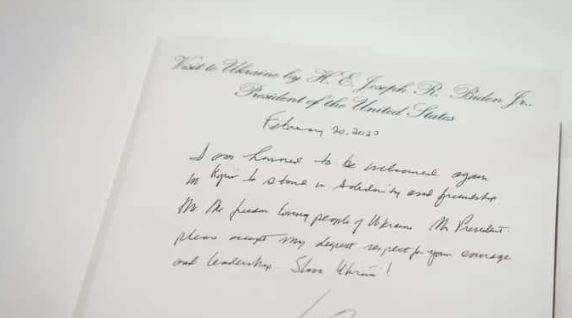 Visit to Ukraine by H. E. Joseph R. Biden Jr.,
President of the United States
February 20, 2023
I am honored to be welcomed again
in Kyiv to stand in solidarity and friendship
with the freedom loving people of Ukraine Mr President
please accept my deepest respect for your courage
and leadership. Slava Ukraini!